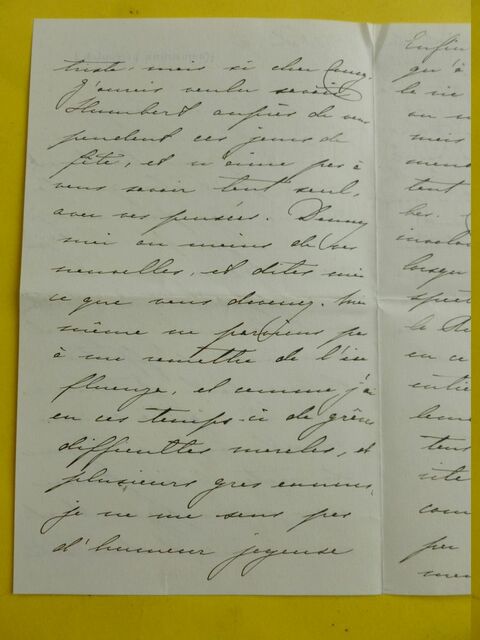 triste, mais si cher
J'aurais voulu savoir
Humbert auprès de vous
pendant ces jours de
fête, et n'aime pas à
vous savoir tout seul,
avec vos pensées. Donnez
moi au moins de vos
nouvelles, et dites moi
ce que vous devenez. Moi
même ne parviens pas
à me remettre de l'in
fluenza, et comme j'ai
en ces temps-ci de grandes
difficultés morales, et
plusieurs gros ennuis,
je ne me sens pas
d'humeur joyeuse
Enfin
qu'à
la vie
mais
tent
lorsqu
en ce